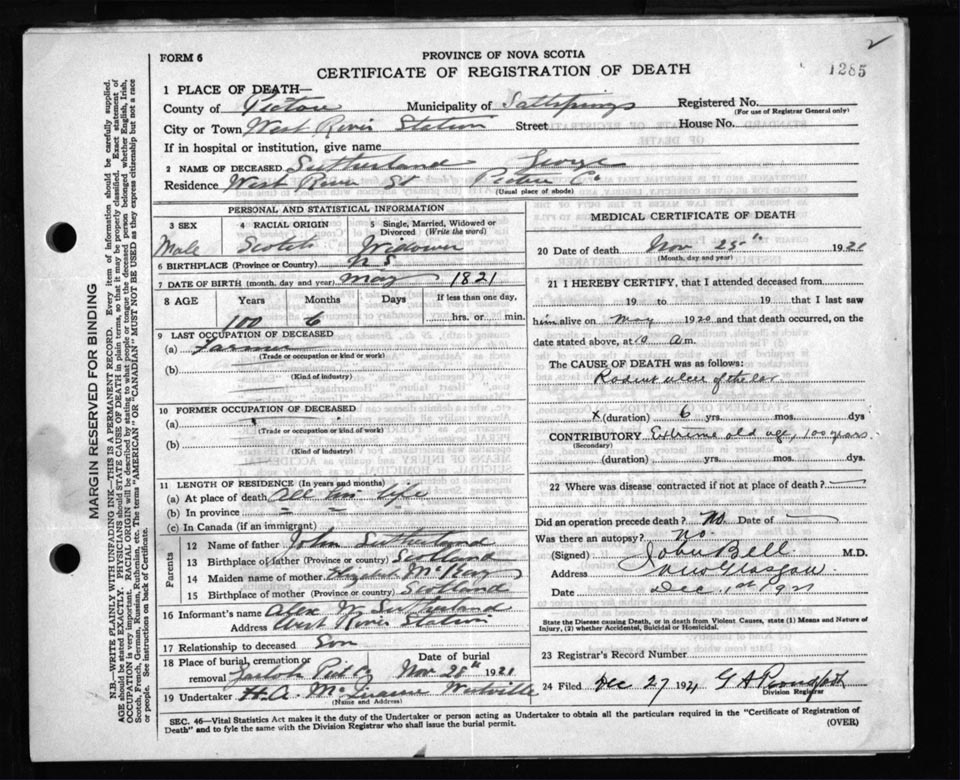 2
FORM 6
PROVINCE OF NOVA SCOTIA
CERTIFICATE OF REGISTRATION OF DEATH
1285
1 PLACE OF DEATH—
County of Pictou Municipality of Saltsprings Registered No.
(For use of Registrar General only)
City or Town West River Station Street House No.
If in hospital or institution, give name
2 NAME OF DECEASED Sutherland George
Residence West River Sta Pictou Co
(Usual place of abode)
PERSONAL AND STATISTICAL INFORMATION
3 SEX 4 RACIAL ORIGIN 5 Single, Married, Widowed or Divorced (Write the word)
Male Scotch Widower
6 BIRTHPLACE (Province or Country) N S
7 DATE OF BIRTH (month, day and year) May 1821
8 AGE Years Months Days If less than one day,
100 6 hrs. or min.
9 LAST OCCUPATION OF DECEASED
(a) Farmer
(Trade or occupation or kind or work)
(b)
(Kind of industry)
10 FORMER OCCUPATION OF DECEASED
(a)
(Trade or occupation or kind of work)
(b)
(Kind of industry)
11 LENGTH OF RESIDENCE (In years and months)
(a) At place of death All his life
(b) In province " " "
(c) In Canada (if an immigrant)
Parents
12 Name of father John Sutherland
13 Birthplace of father (Province or country) Scotland
14 Maiden name of mother McKay
15 Birthplace of mother (Province or country) Scotland
16 Informant's name Alex Sutherland
Address West River Station
17 Relationship to deceased Son
18 Place of burial, cremation or removal Date of burial
Nov 28th 1921
19 Undertaker H.A. Westville
(Name and Address)
MEDICAL CERTIFICATE OF DEATH
20 Date of death Nov 25th 1921
(Month, day and year)
21 I HEREBY CERTIFY, that I attended deceased from
19 to 19 that I last saw
him alive on May 1920 and that death occurred, on
date stated above, at 10 am.
The CAUSE OF DEATH was as follows:
Rodent ulcer of the
x (duration) 6 yrs. mos. dys
CONTRIBUTORY Extreme old age, 100 years
(Secondary)
(duration) yrs. mos. dys.
22 Where was disease contracted if not at place of death?
Did an operation precede death? No. Date of
Was there an autopsy? No.
(Signed) John Bell M.D.
Address New Glasgow
Date Dec 1st 1921
State the Disease causing Death, or in death from Violent Causes, state (1) Means and Nature of
Injury, (2) whether Accidental, Suicidal or Homicidal.
23 Registrar's Record Number
24 Filed Dec 27 1921 G A
Division Registrar
SEC. 46—Vital Statistics Act makes it the duty of the Undertaker or person acting as Undertaker to obtain all the particulars required in the "Certificate of Registration of
Death" and to fyle the same with the Division Registrar who shall issue the burial permit. (OVER)
MARGIN RESERVED FOR BINDING
N.B.—WRITE PLAINLY WITH UNFADING INK—THIS IS A PERMANENT RECORD. Every item of information should be carefully supplied.
AGE should be stated EXACTLY. PHYSICIANS should STATE CAUSE OF DEATH in plain terms, so that it may be properly classified. Exact statement of
OCCUPATION is very important. RACIAL ORIGIN will be described by stating to what people or tongue the deceased person belonged whether English, Irish,
Scotch, French, German, Russian, Ruthenian, etc. The terms "AMERICAN" OR "CANADIAN" MUST NOT BE USED as they express citizenship but not a race
or people. See instructions on back of Certificate.